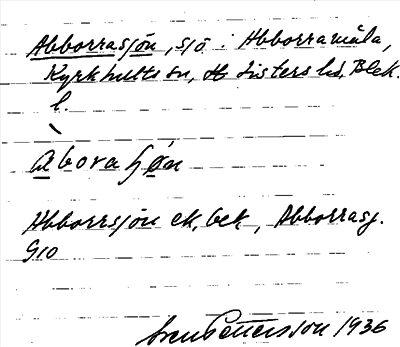 Abborrasjön, sjö i Abborramåla,
Kyrkhults sn, Listers hd, Blek.
l.
abora ʃøn
Abborrsjön ek, bek, Abborrasj.
G10
Sven Pettersson 1936